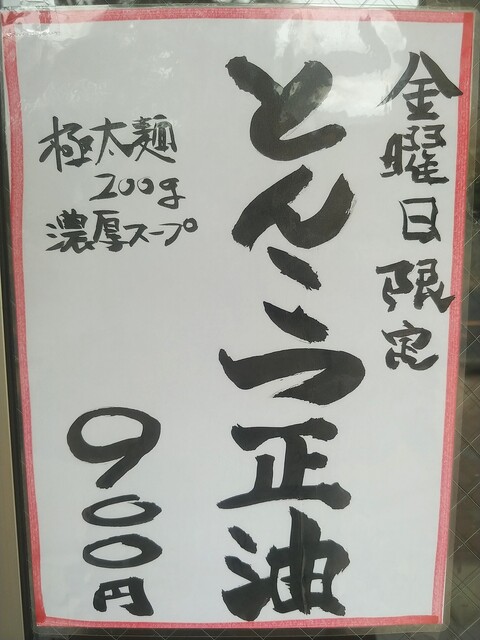 金曜日限定
とんこつ正油
極太麺
200g
濃厚スープ
900円